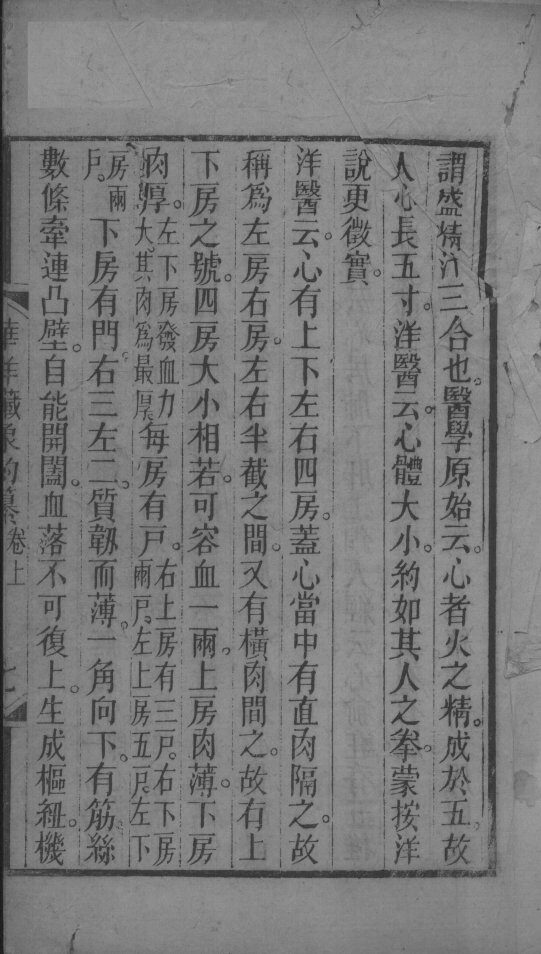 謂盛精汁三合也。醫學原始云。心者火之精。成於五。故
人心長五寸。洋醫云。心體大小。約如其人之拳。蒙按洋
說更徵實。
洋醫云。心有上下左右四房。蓋心當中有直肉隔之。故
稱爲左房右房。左右半截之間。又有橫肉間之。故有上
下房之號。四房大小相若。可容血一兩。上房肉薄。下房
肉厚。左下房發血力大。其肉爲最厚。每房有戸。右上房有三戸。右下房兩戸。左上房五戸。左下
房兩戸。下房有門。右三左二。質韌而薄。一角向下。有筋絲
數條。牽連凸壁。自能開闔。血落不可復上。生成樞紐。機
華洋藏象約纂 卷上 七